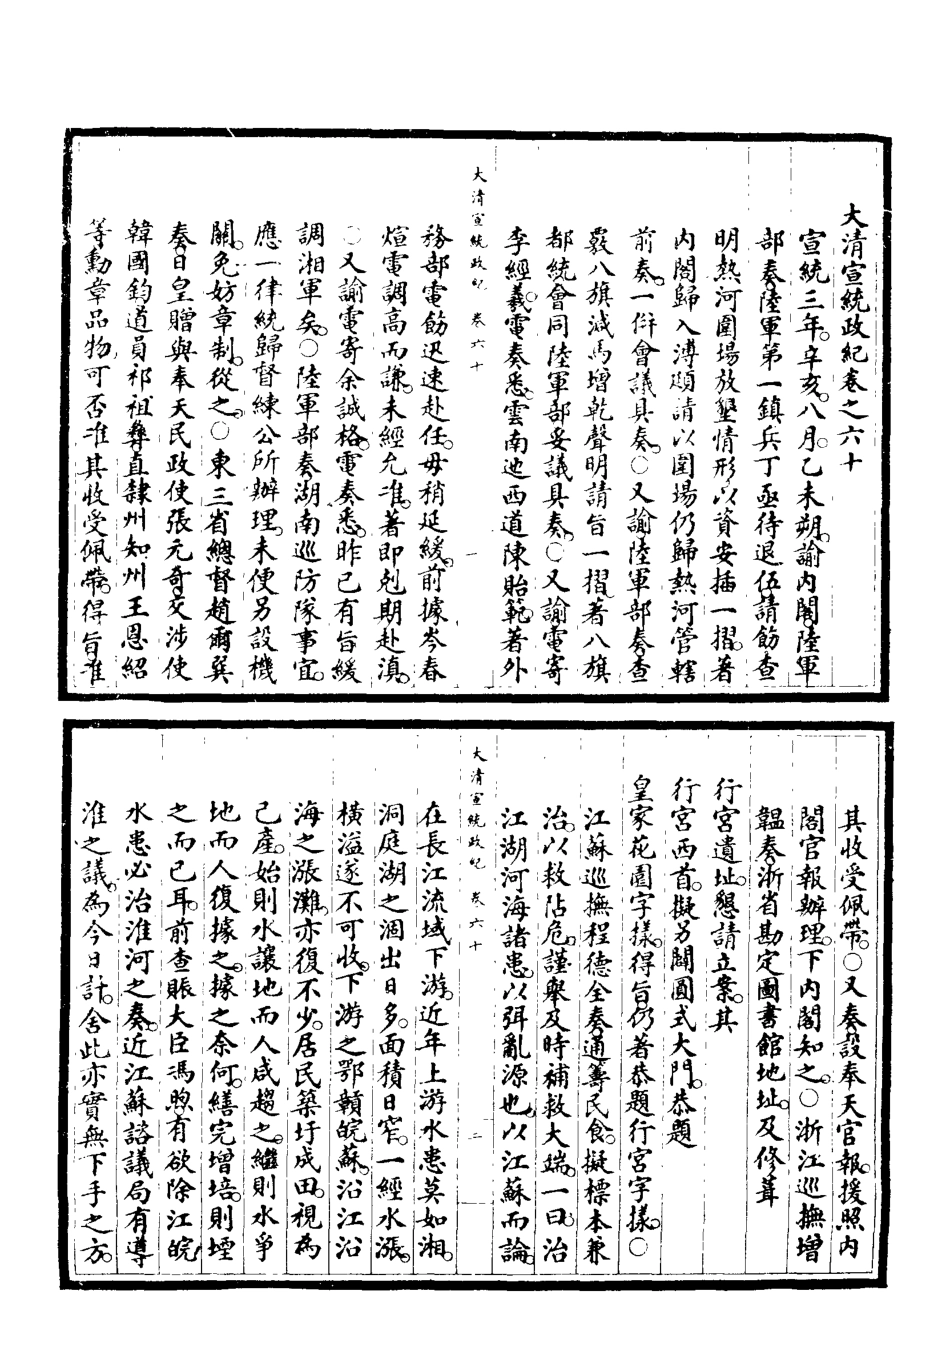 大清宣統政紀卷之六十
宣統三年。辛亥。八月。乙未朔。諭內閣。陸軍
部奏陸軍第一鎮兵丁亟待退伍。請飭查
明熱河圍場放墾情形。以資安插一摺。著
內閣歸入溥頲請以圍場仍歸熱河管轄
前奏。一倂會議具奏。○又諭。陸軍部奏查
覈八旗減馬增乾。聲明請旨一摺。著八旗
都統會同陸軍部妥議具奏。○又諭。電寄
李經羲。電奏悉。雲南迆西道陳貽範。著外
大清宣統政紀 卷六十 一
務部電飭迅速赴任。毋稍延緩。前據岑春
煊電調高而謙。未經允准。著即剋期赴滇。
○又諭。電寄余誠格。電奏悉。昨已有旨緩
調湘軍矣。○陸軍部奏。湖南巡防隊事宜。
應一律統歸督練公所辦理。未便另設機
關。免妨章制。從之。○東三省總督趙爾巽
奏。日皇贈與奉天民政使張元奇。交涉使
韓國鈞。道員祁祖彝。直隸州知州王恩紹
等勳章品物。可否准其收受佩帶。得旨。准
其收受佩帶。○又奏。設奉天官報。援照內
閣官報辦理。下內閣知之。○浙江巡撫增
韞奏。浙省勘定圖書館地址。及修葺
行宮遺址。懇請立案。其
行宮西首。擬另闢圓式大門。恭題
皇家花園字樣。得旨。仍著恭題行宮字樣。○
江蘇巡撫程德全奏。通籌民食。擬標本兼
治。以救阽危。謹舉及時補救大端。一曰。治
江湖河海諸患。以弭亂源也。以江蘇而論。
大清宣統政紀 卷六十 二
在長江流域下游。近年上游水患。莫如湘。
洞庭湖之涸出日多。面積日窄。一經水漲。
橫溢遂不可收。下游之鄂贛皖蘇。沿江沿
海之漲灘。亦復不少。居民築圩成田。視為
己產。始則水讓地而人咸趨之。繼則水爭
地而人復據之。據之奈何。繕完增培。則堙
之而已耳。前查賑大臣馮煦有欲除江皖
水患。必治淮河之奏。近江蘇諮議局有導
淮之議。為今日計。舍此亦實無下手之方。